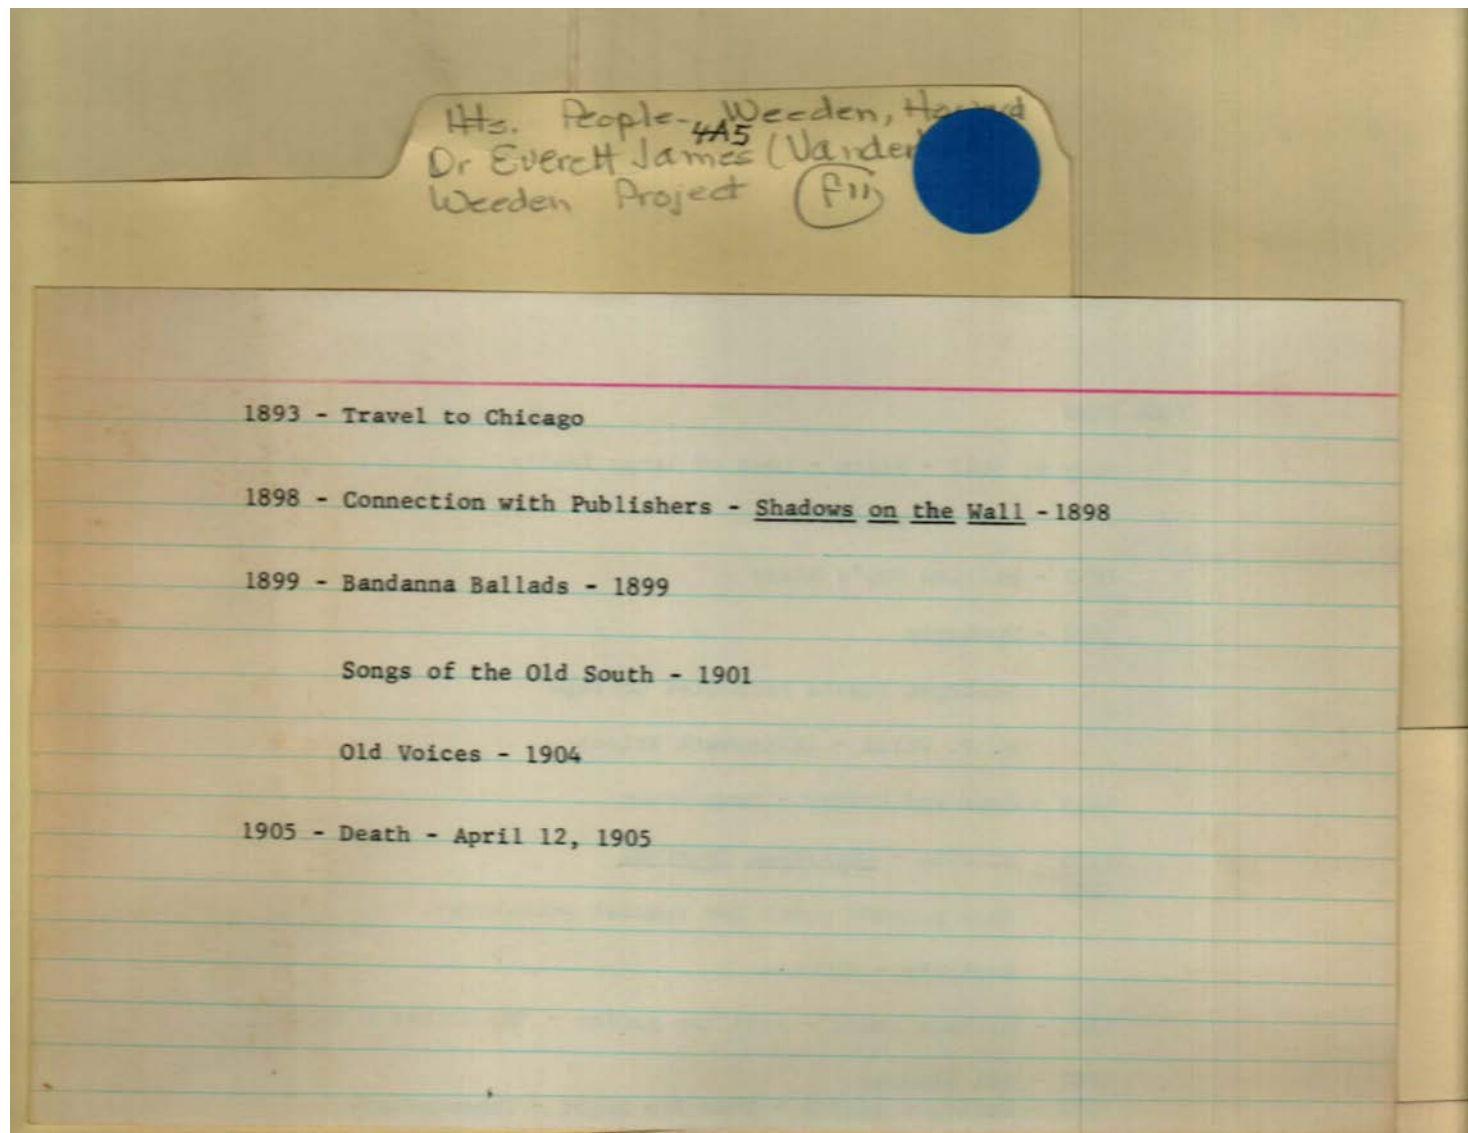 Hts. People- Weeden, Howard
4A5
Dr Everett James (Vander
Weeden Project f11
1893 - Travel to Chicago
1898 - Connection with Publishers - Shadows on the Wall - 1898
1899 - Bandanna Ballads - 1899
Songs of the Old South - 1901
Old Voices - 1904
1905 - Death - April 12, 1905